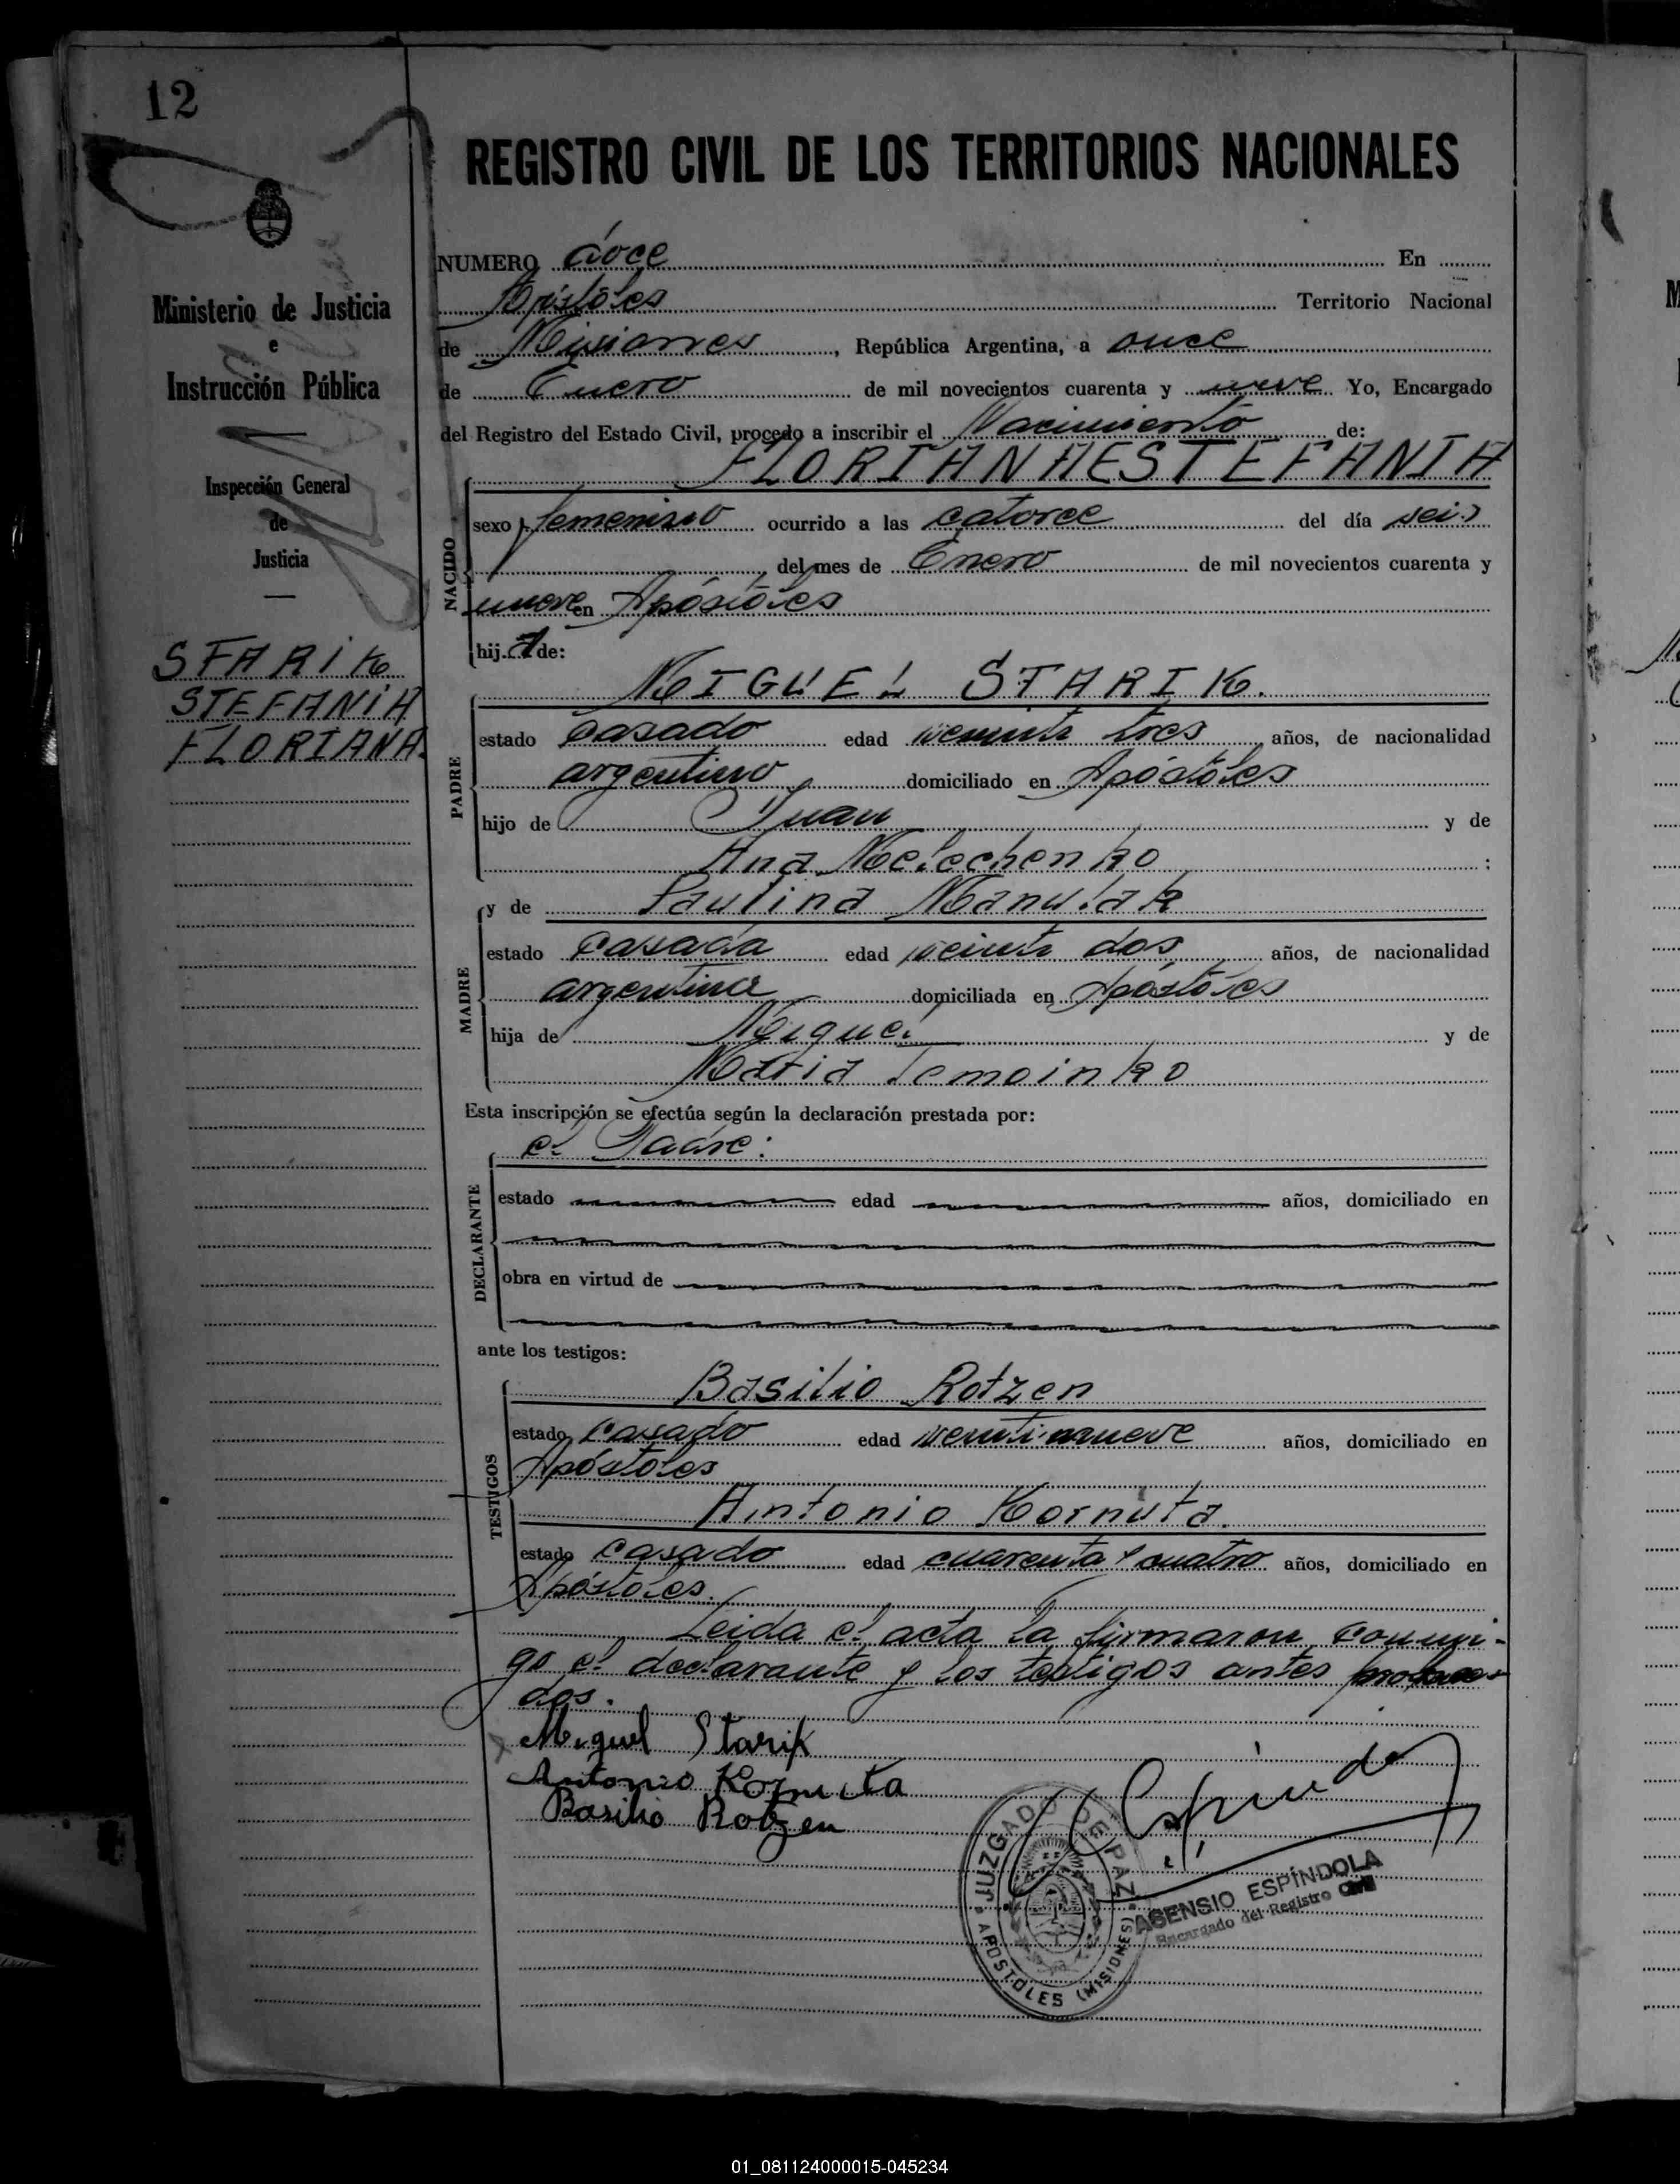 12
REGISTRO CIVIL DE LOS TERRITORIOS NACIONALES
Ministerio de Justicia
e
Instrucción Pública
Inspección General
de
Justicia
STARIK
STEFANIA
FLORIANA.
NUMERO doce En
Apóstoles Territorio Nacional
de Misiones, República Argentina, a once
de Enero de mil novecientos cuarenta y nueve Yo, Encargado
del Registro del Estado Civil, procedo a inscribir el Nacimiento de:
FLORIANA ESTEFANIA
NACIDO
sexo femenino ocurrido a las catorce del día seis
del mes de Enero de mil novecientos cuarenta y
nueve en Apóstoles
hija de:
MIGUEL STARIK.
PADRE
estado casado edad veinti tres años, de nacionalidad
argentino domiciliado en Apóstoles
hijo de Juan y de
Ana Melechenko :
y de Paulina Manulak
MADRE
estado casada edad veinti dos años, de nacionalidad
argentina domiciliada en Apóstoles
hija de Miguel y de
María
Esta inscripción se efectúa según la declaración prestada por:
el Padre:
DECLARANTE
estado edad años, domiciliado en
obra en virtud de
ante los testigos:
Basilio Rotzen
TESTIGOS
estado casado edad veintinueve años, domiciliado en
Apóstoles
Antonio Kornuta.
estado casado edad cuarenta y cuatro años, domiciliado en
Apóstoles.
Leida el acta la firmaron conmi-
go el declarante y los testigos antes
dos.
Miguel Starik
Antonio Kornuta
Basilio Rotzen
JUZGADO DE PAZ
APOSTOLES (MISIONES)
ASENSIO ESPÍNDOLA
Encargado del Registro Civil
01_081124000015-045234